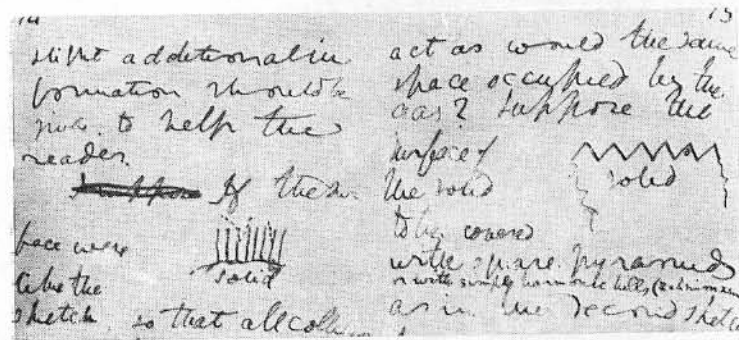 14
slight additional in
formation should be
given to help the
reader.
If the sur
face were
like the
solid
sketch, so that all
15
act as would the same
space occupied by the
gas? Suppose the
surface of
the solid
solid
to be covered
with square pyramids
or with simply harmonic hills
as in the second sketch